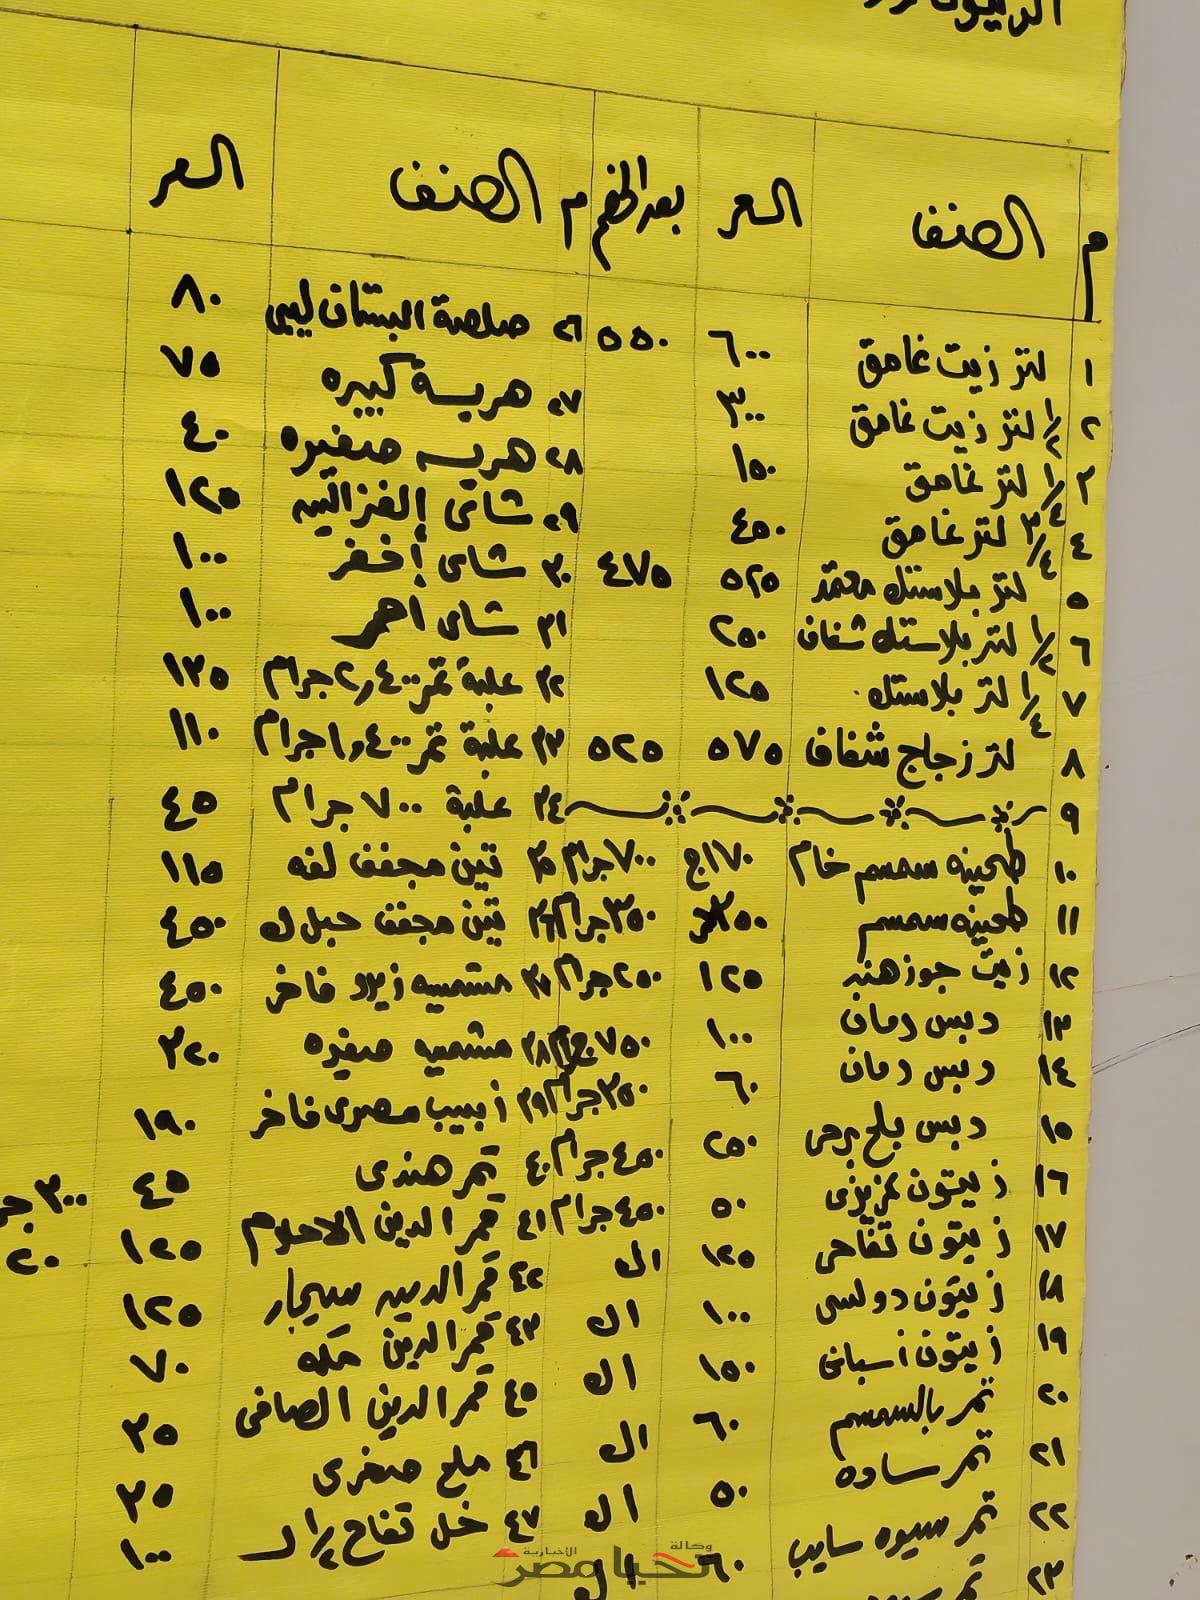 م الصنف السعر بعد الخصم م الصنف السعر
١ لتر زيت غامق ٦٠٠ ٥٥٠ ٢٦ صلصة البستان ليبي ٨٠
٢ ١/٢ لتر زيت غامق ٣٠٠ ٢٧ هريسة كبيره ٧٥
٣ ١/٤ لتر غامق ١٥٠ ٢٨ هريسه صغيره ٤٠
٤ ٣/٤ لتر غامق ٤٥٠ ٢٩ شاى الغزالتين ١٢٥
٥ لتر بلاستك معتمد ٥٢٥ ٤٧٥ ٣٠ شاى إخضر ١٠٠
٦ ١/٢ لتر بلاستك شفاف ٢٥٠ ٣١ شاى احمر ١٠٠
٧ ١/٤ لتر بلاستك ١٢٥ ٣٢ علبة تمر ٢,٤٠٠ جرام ١٣٥
٨ لتر زجاج شفاف ٥٧٥ ٥٢٥ ٣٣ علبة تمر ١,٤٠٠ جرام ١١٠
٩ ٣٤ علبة ٧٠٠ جرام ٤٥
١٠ طحينه سمسم خام ١٧٠ج ٧٠٠ جرام ٣٥ تين مجفف لفه ١١٥
١١ طحينه سمسم ٣٥٠ جرام ٣٦ تين مجفف حبل ك ٤٥٠
١٢ زيت جوز هند ١٢٥ ٢٥٠ جرام ٣٧ مشمسيه زيرو فاخر ٤٥٠
١٣ دبس رمان ١٠٠ ٧٥٠ جرام ٣٨ مشمسيه صغيره ٣٢٠
١٤ دبس رمان ٦٠ ٣٥٠ جرام ٣٩ زبيب مصرى فاخر ١٩٠
١٥ دبس بلح برحى ٢٥٠ ٤٥٠ جرام ٤٠ تمر هندى ٤٥ ٣٠٠ جر
١٦ زيتون عزيزى ٥٠ ٤٥٠ جرام ٤١ قمر الدين الاحلام ١٢٥ ٢٠
١٧ زيتون تفاحى ١٢٥ ١ك ٤٢ قمر الدين سيجار ١٢٥
١٨ زيتون دولسى ١٠٠ ١ك ٤٣ قمر الدين مكه ٧٠
١٩ زيتون أسبانى ١٥٠ ١ك ٤٥ قمر الدين الصافى ٣٥
٢٠ تمر بالسمسم ٦٠ ١ك ٤٦ ملح صخرى ٣٥
٢١ تمر ساده ٥٠ ١ك ٤٧ خل تفاح ١٠٠
٢٢ تمر سيوه سايب ٦٠ ١ك
٢٣ تمر
وكالة تحيا مصر الأخبارية